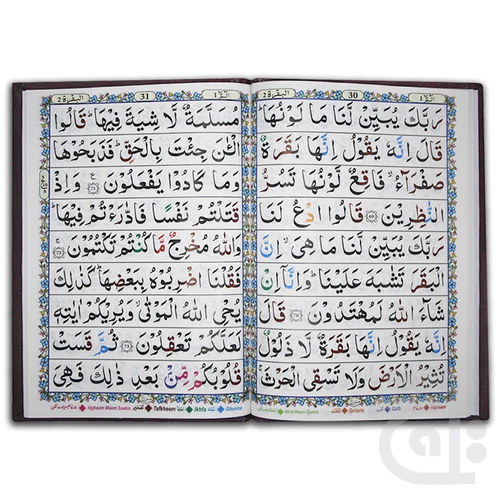 البقرة ٢
30
الٓمّٓ ١
رَبَّكَ يُبَيِّنْ لَّنَا مَا لَوْنُهَا ؕ
قَالَ اِنَّهٗ يَقُوْلُ اِنَّهَا بَقَرَةٌ
صَفْرَآءُ ۙ فَاقِعٌ لَّوْنُهَا تَسُرُّ
النّٰظِرِيْنَ ﴿۶۹﴾ قَالُوا ادْعُ لَنَا
رَبَّكَ يُبَيِّنْ لَّنَا مَا هِىَ ۙ اِنَّ
الْبَقَرَ تَشٰبَهَ عَلَيْنَا ؕ وَاِنَّاۤ اِنْ
شَآءَ اللّٰهُ لَمُهْتَدُوْنَ ﴿۷۰﴾ قَالَ
اِنَّهٗ يَقُوْلُ اِنَّهَا بَقَرَةٌ لَّا ذَلُوْلٌ
تُثِيْرُ الْاَرْضَ وَلَا تَسْقِى الْحَرْثَ ۚ
Idghaam
Qalb
Qalqala
البقرة ٢
31
الٓمّٓ ١
مُسَلَّمَةٌ لَّا شِيَةَ فِيْهَا ؕ قَالُوا
الْـٰٔنَ جِئْتَ بِالْحَقِّ ؕ فَذَبَحُوْهَا
وَمَا كَادُوْا يَفْعَلُوْنَ ﴿۷۱﴾ وَاِذْ
قَتَلْتُمْ نَفْسًا فَادّٰرَءْتُمْ فِيْهَا ؕ
وَاللّٰهُ مُخْرِجٌ مَّا كُنْتُمْ تَكْتُمُوْنَ ﴿۷۲﴾
فَقُلْنَا اضْرِبُوْهُ بِبَعْضِهَا ؕ كَذٰلِكَ
يُحْىِ اللّٰهُ الْمَوْتٰى ۙ وَيُرِيْكُمْ اٰيٰتِهٖ
لَعَلَّكُمْ تَعْقِلُوْنَ ﴿۷۳﴾ ثُمَّ قَسَتْ
قُلُوْبُكُمْ مِّنْۢ بَعْدِ ذٰلِكَ فَهِىَ
Ghunna
Ikhfa
Tafkheem
Idghaam Meem Saakin